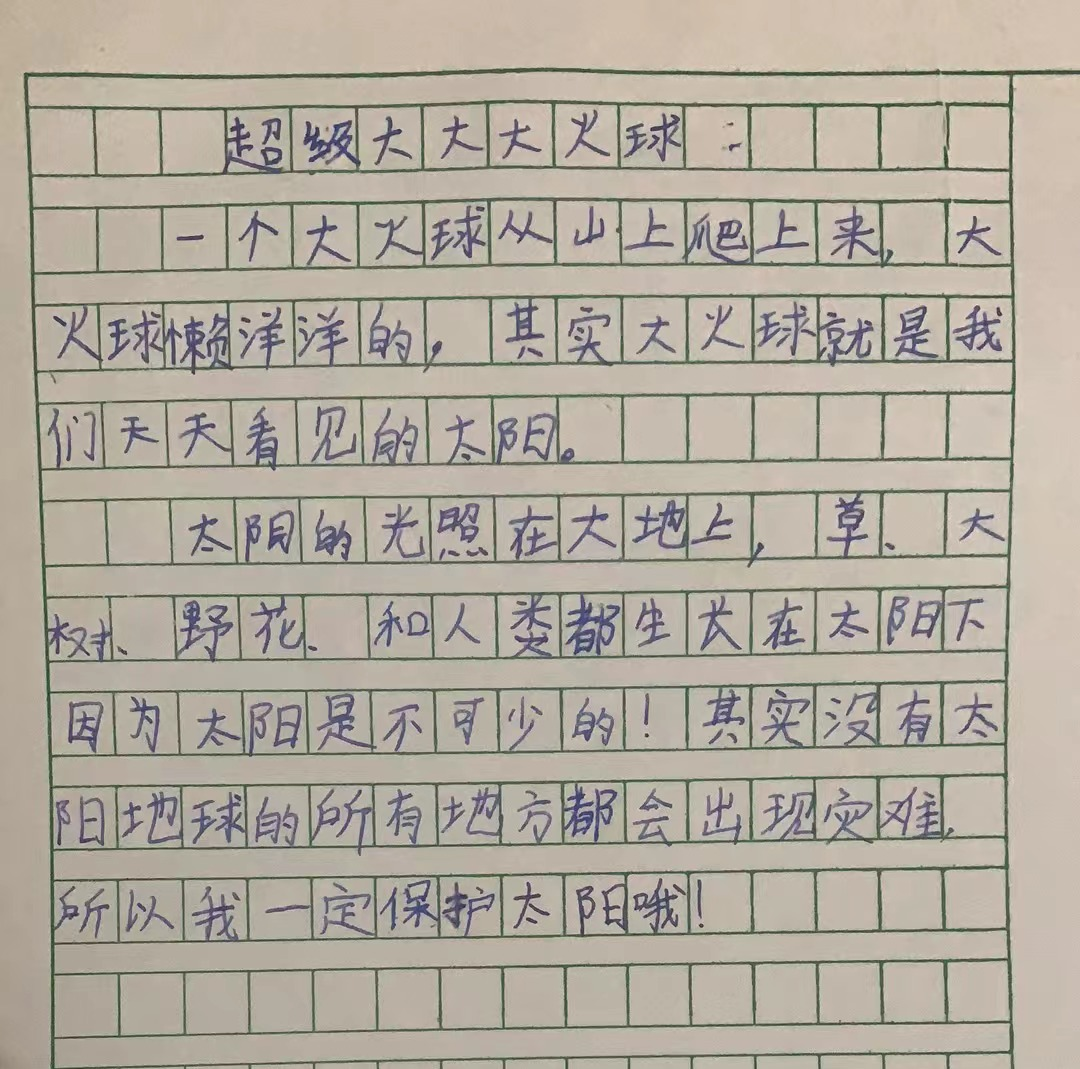 超级大大大火球：
一个大火球从山上爬上来，大
火球懒洋洋的，其实大火球就是我
们天天看见的太阳。
太阳的光照在大地上，草、大
树、野花、和人类都生长在太阳下
因为太阳是不可少的！其实没有太
阳地球的所有地方都会出现灾难，
所以我一定保护太阳哦！